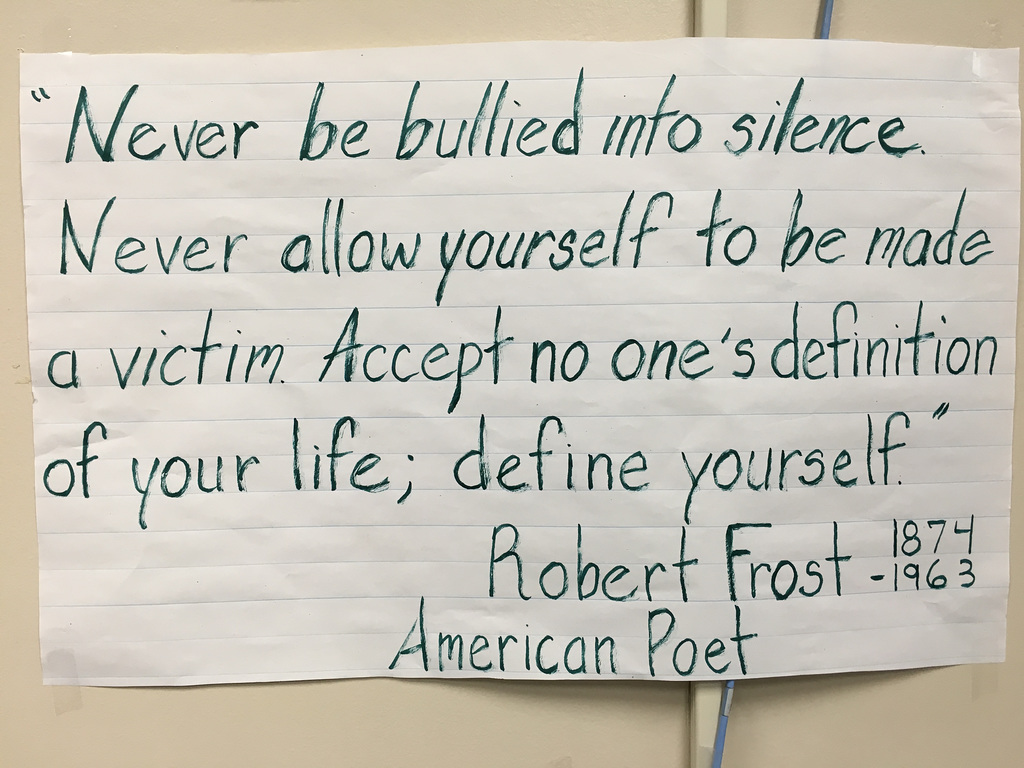 "Never be bullied into silence.
Never allow yourself to be made
a victim. Accept no one's definition
of your life; define yourself."
Robert Frost 1874
-1963
American Poet